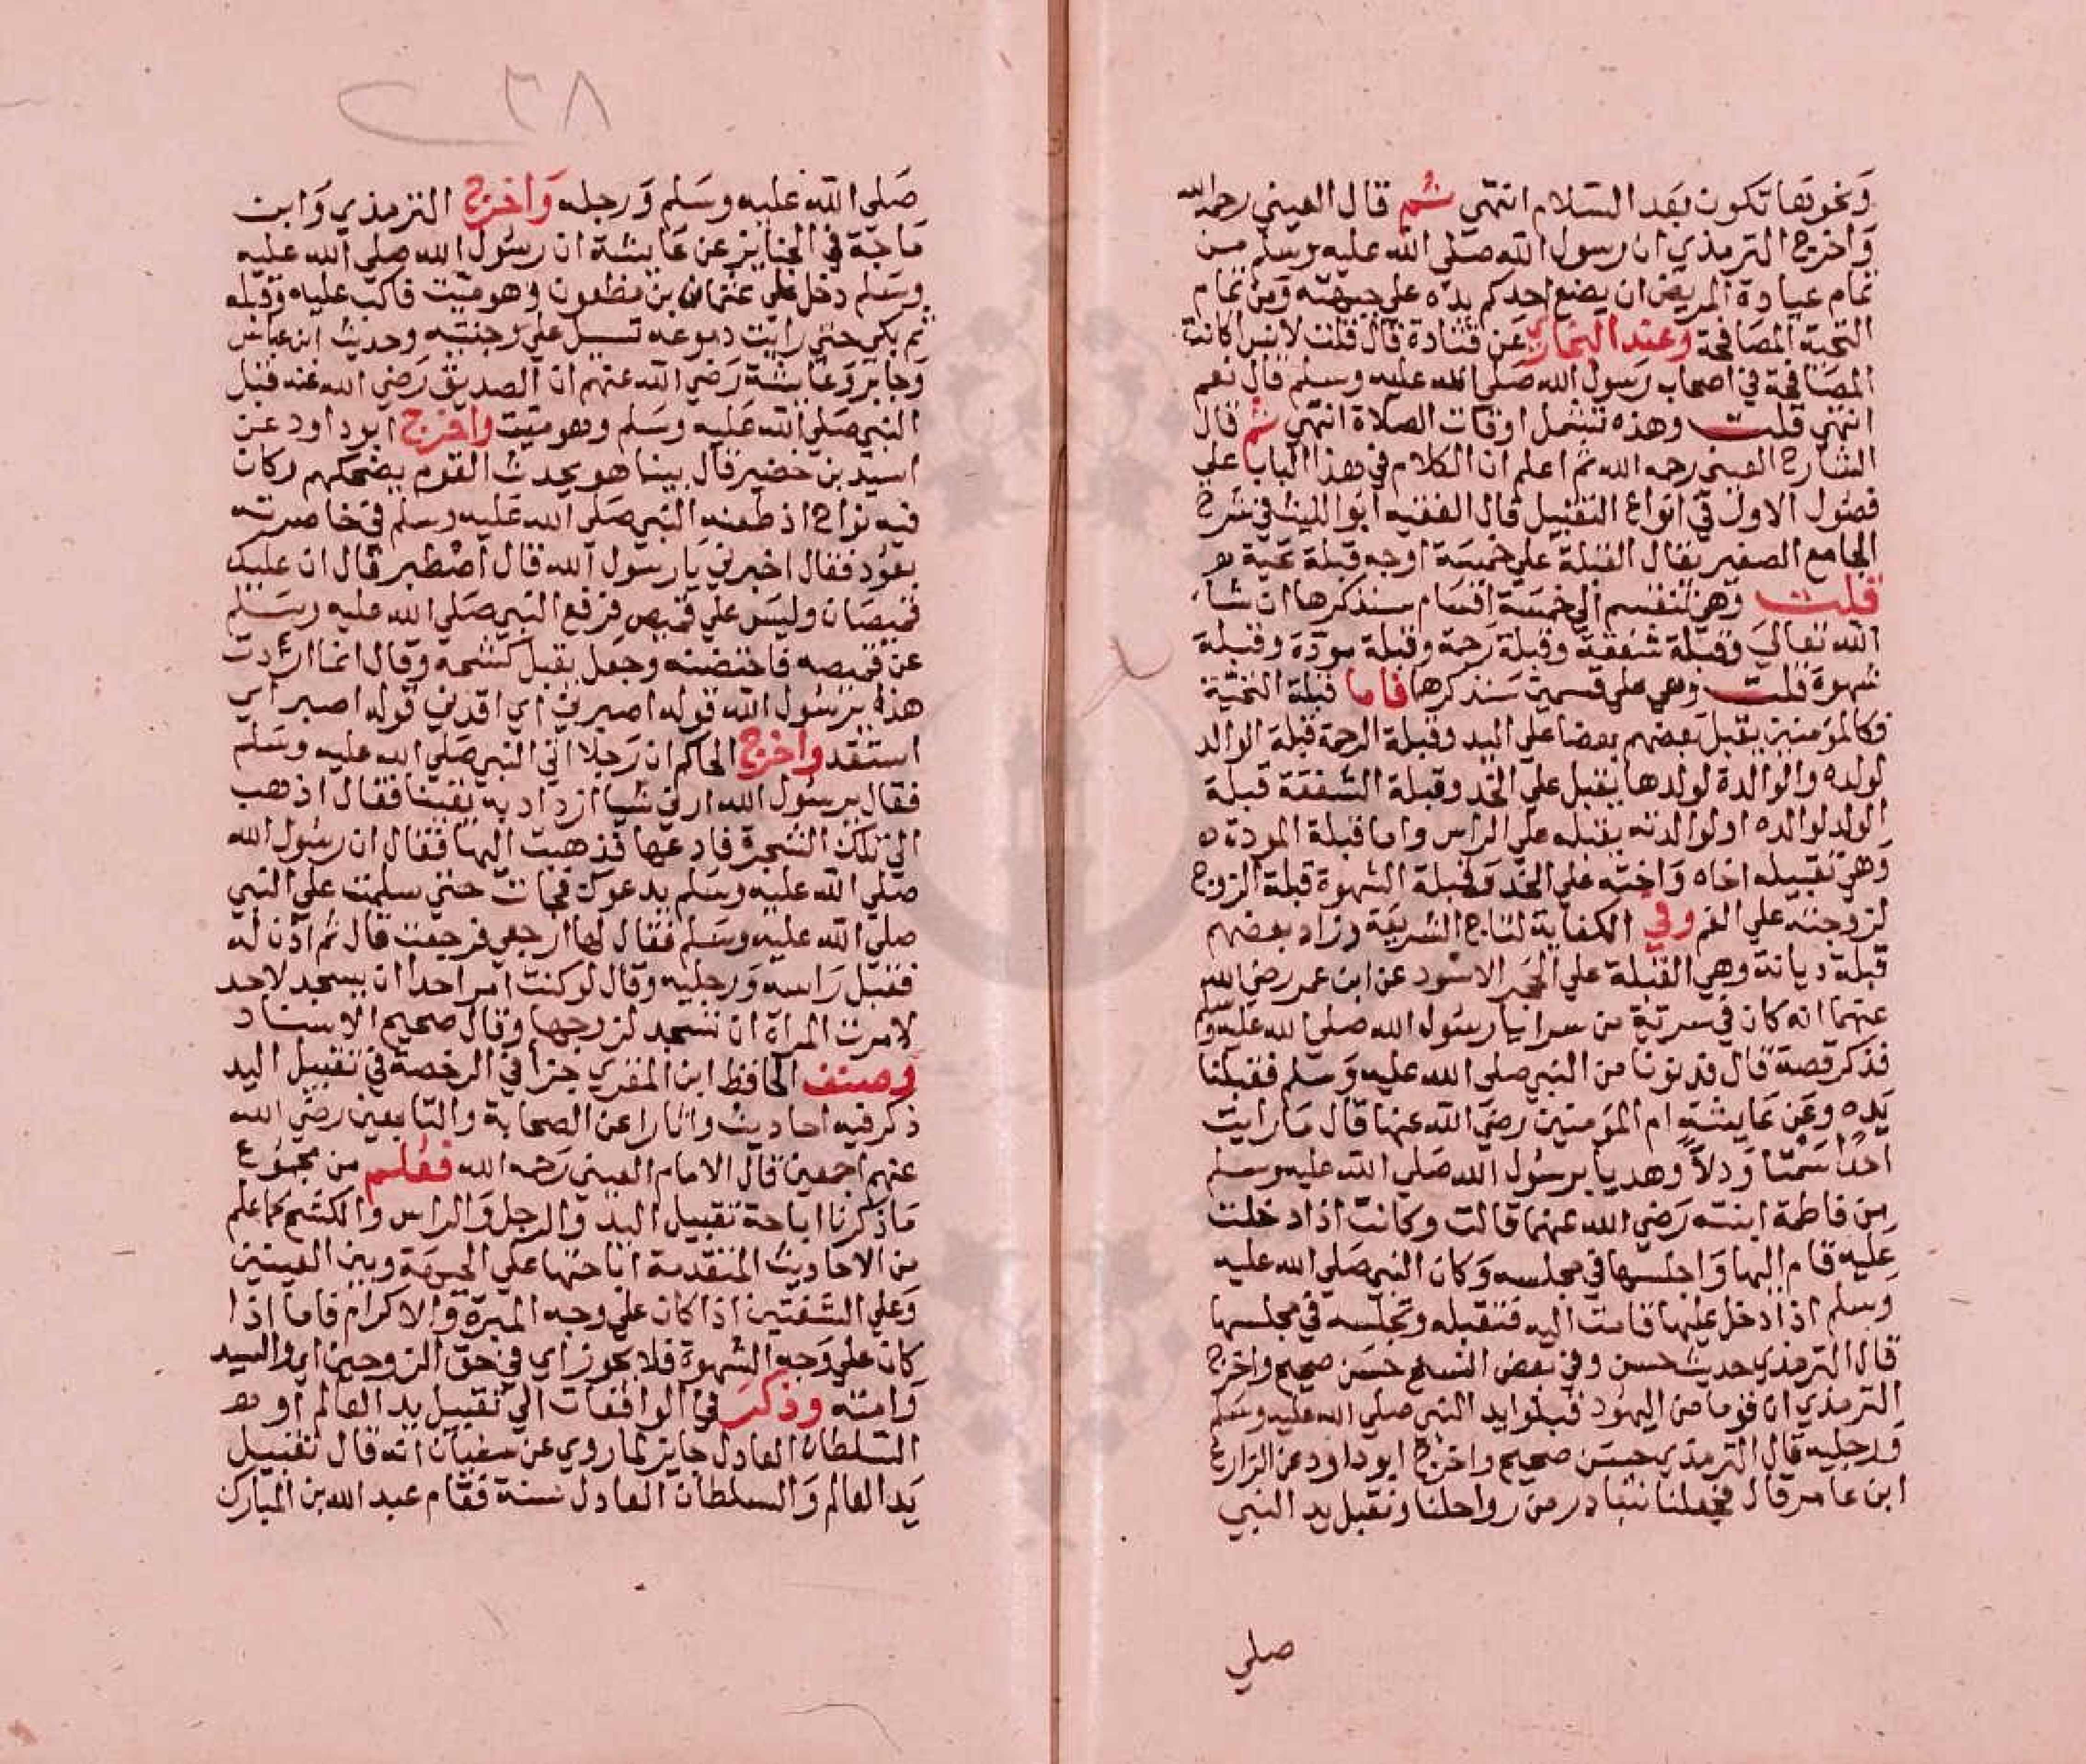 ونحوتها تكون بعد السلام انتهى ثم قال العيني رحمه الله
واخرج الترمذي ان رسول الله صلى الله عليه وسلم من
تمام عيادة المريض ان يضع احدكم يده علي جبهته ومن تمام
التحية المصافحة وعند البخاري عن قتادة قال قلت لانس اكانت
المصافحة في اصحاب رسول الله صلى الله عليه وسلم قال نعم
انتهى قلت وهذه تشمل اوقات الصلاة انتهى ثم قال
الشارح العيني رحمه الله ثم اعلم ان الكلام في هذا الباب علي
فصول الاول في انواع التقبيل قال الفقيه ابو الليث في شرح
الجامع الصغير يقال القبلة علي خمسة اوجه قبلة تحية
قلت وهي تنقسم الي خمسة اقسام سنذكرها ان شاء
الله تعالى وقبلة شفقة وقبلة رحمة وقبلة مودة وقبلة
شهوة قلت وهي علي قسمين سنذكرها فاما قبلة التحية
فكالمؤمنين يقبل بعضهم بعضا على اليد وقبلة الرحمة قبلة الوالد
لولده والوالدة لولدها يقبل علي الخد وقبلة الشفقة قبلة
الولد لوالده او لوالدته يقبله علي الراس واما قبلة المودة
وهي تقبيله اخاه واخته علي الخد وقبلة الشهوة قبلة الزوج
لزوجته علي الفم وفي الكفاية لتاج الشريعة وزاد بعضهم
قبلة ديانة وهي القبلة علي الحجر الاسود عن ابن عمر رضي الله
عنهما انه كان في سرية من سرايا رسول الله صلى الله عليه وسلم
فذكر قصة قال فدنونا من النبي صلى الله عليه وسلم فقبلنا
يده وعن عايشة ام المؤمنين رضي الله عنها قال ما رايت
احدا سمتا ودلا وهديا برسول الله صلي الله عليه وسلم
من فاطمة ابنته رضي الله عنها قالت وكانت اذا دخلت
عليه قام اليها واجلسها في مجلسه وكان النبي صلى الله عليه
وسلم اذا دخل عليها قامت اليه فتقبله وتجلسه في مجلسها
قال الترمذي حديث حسن وفي بعض النسخ حسن صحيح واخرج
الترمذي ان قوما من اليهود قبلوا يد النبي صلي الله عليه وسلم
ورجليه قال الترمذي حسن صحيح واخرج ابو داود عن الزارع
ابن عامر قال فجعلنا نتبادر من رواحلنا ونقبل يد النبي
صلي
٣٨
صلى الله عليه وسلم ورجله واخرج الترمذي وابن
ماجة في الجنايز عن عايشة ان رسول الله صلى الله عليه
وسلم دخل علي عثمان بن مظعون وهو ميت فاكب عليه وقبله
ثم بكي حتي رايت دموعه تسيل علي وجنته وحديث ابن عباس
وجابر وعايشة رضي الله عنهم ان الصديق رضي الله عنه قبل
النبي صلى الله عليه وسلم وهو ميت واخرج ابو داود عن
اسيد بن حضير قال بينا هو يحدث القوم يضحكهم وكان
فيه مزاح اذ طعنه النبي صلى الله عليه وسلم في خاصرته
بعود فقال اخبرني يا رسول الله قال اصطبر قال ان عليك
قميصان وليس علي قميص فرفع النبي صلى الله عليه وسلم
عن قميصه فاحتضنه وجعل يقبل كشحه وقال انما اردت
هذا يرسول الله قوله اصبرني اي اقدني قوله اصبر اي
استقد واخرج الحاكم ان رجلا اتي النبي صلى الله عليه وسلم
فقال يرسول الله ارني شيا ازداد به يقينا فقال اذهب
الي تلك الشجرة فادعها فذهبت اليها فقال ان رسول الله
صلى الله عليه وسلم يدعوك فجات حتي سلمت علي النبي
صلي الله عليه وسلم فقال لها ارجعي فرجعت قال ثم اذن له
فقبل راسه ورجليه وقال لو كنت امر احدا ان يسجد لاحد
لامرت المراة ان تسجد لزوجها وقال صحيح الاسناد
وصنف الحافظ ابن المقري جزا في الرخصة في تقبيل اليد
ذكر فيه احاديث واثارا عن الصحابة والتابعين رضي الله
عنهم اجمعين قال الامام العيني رحمه الله فعلم من مجموع
ما ذكرنا اباحة تقبيل اليد والرجل والراس والكشح كما علم
من الاحاديث المتقدمة اباحتها علي الجبهة وبين العينين
وعلي الشفتين اذا كان علي وجه المبرة والاكرام فاما اذا
كان علي وجه الشهوة فلا يجوز اي في حق الزوجين اي والسيد
وامته وذكر في الواقعات الي تقبيل يد العالم او
السلطان العادل جايز لما روي عن سفيان انه قال تقبيل
يد العالم والسلطان العادل سنة فقام عبد الله بن المبارك